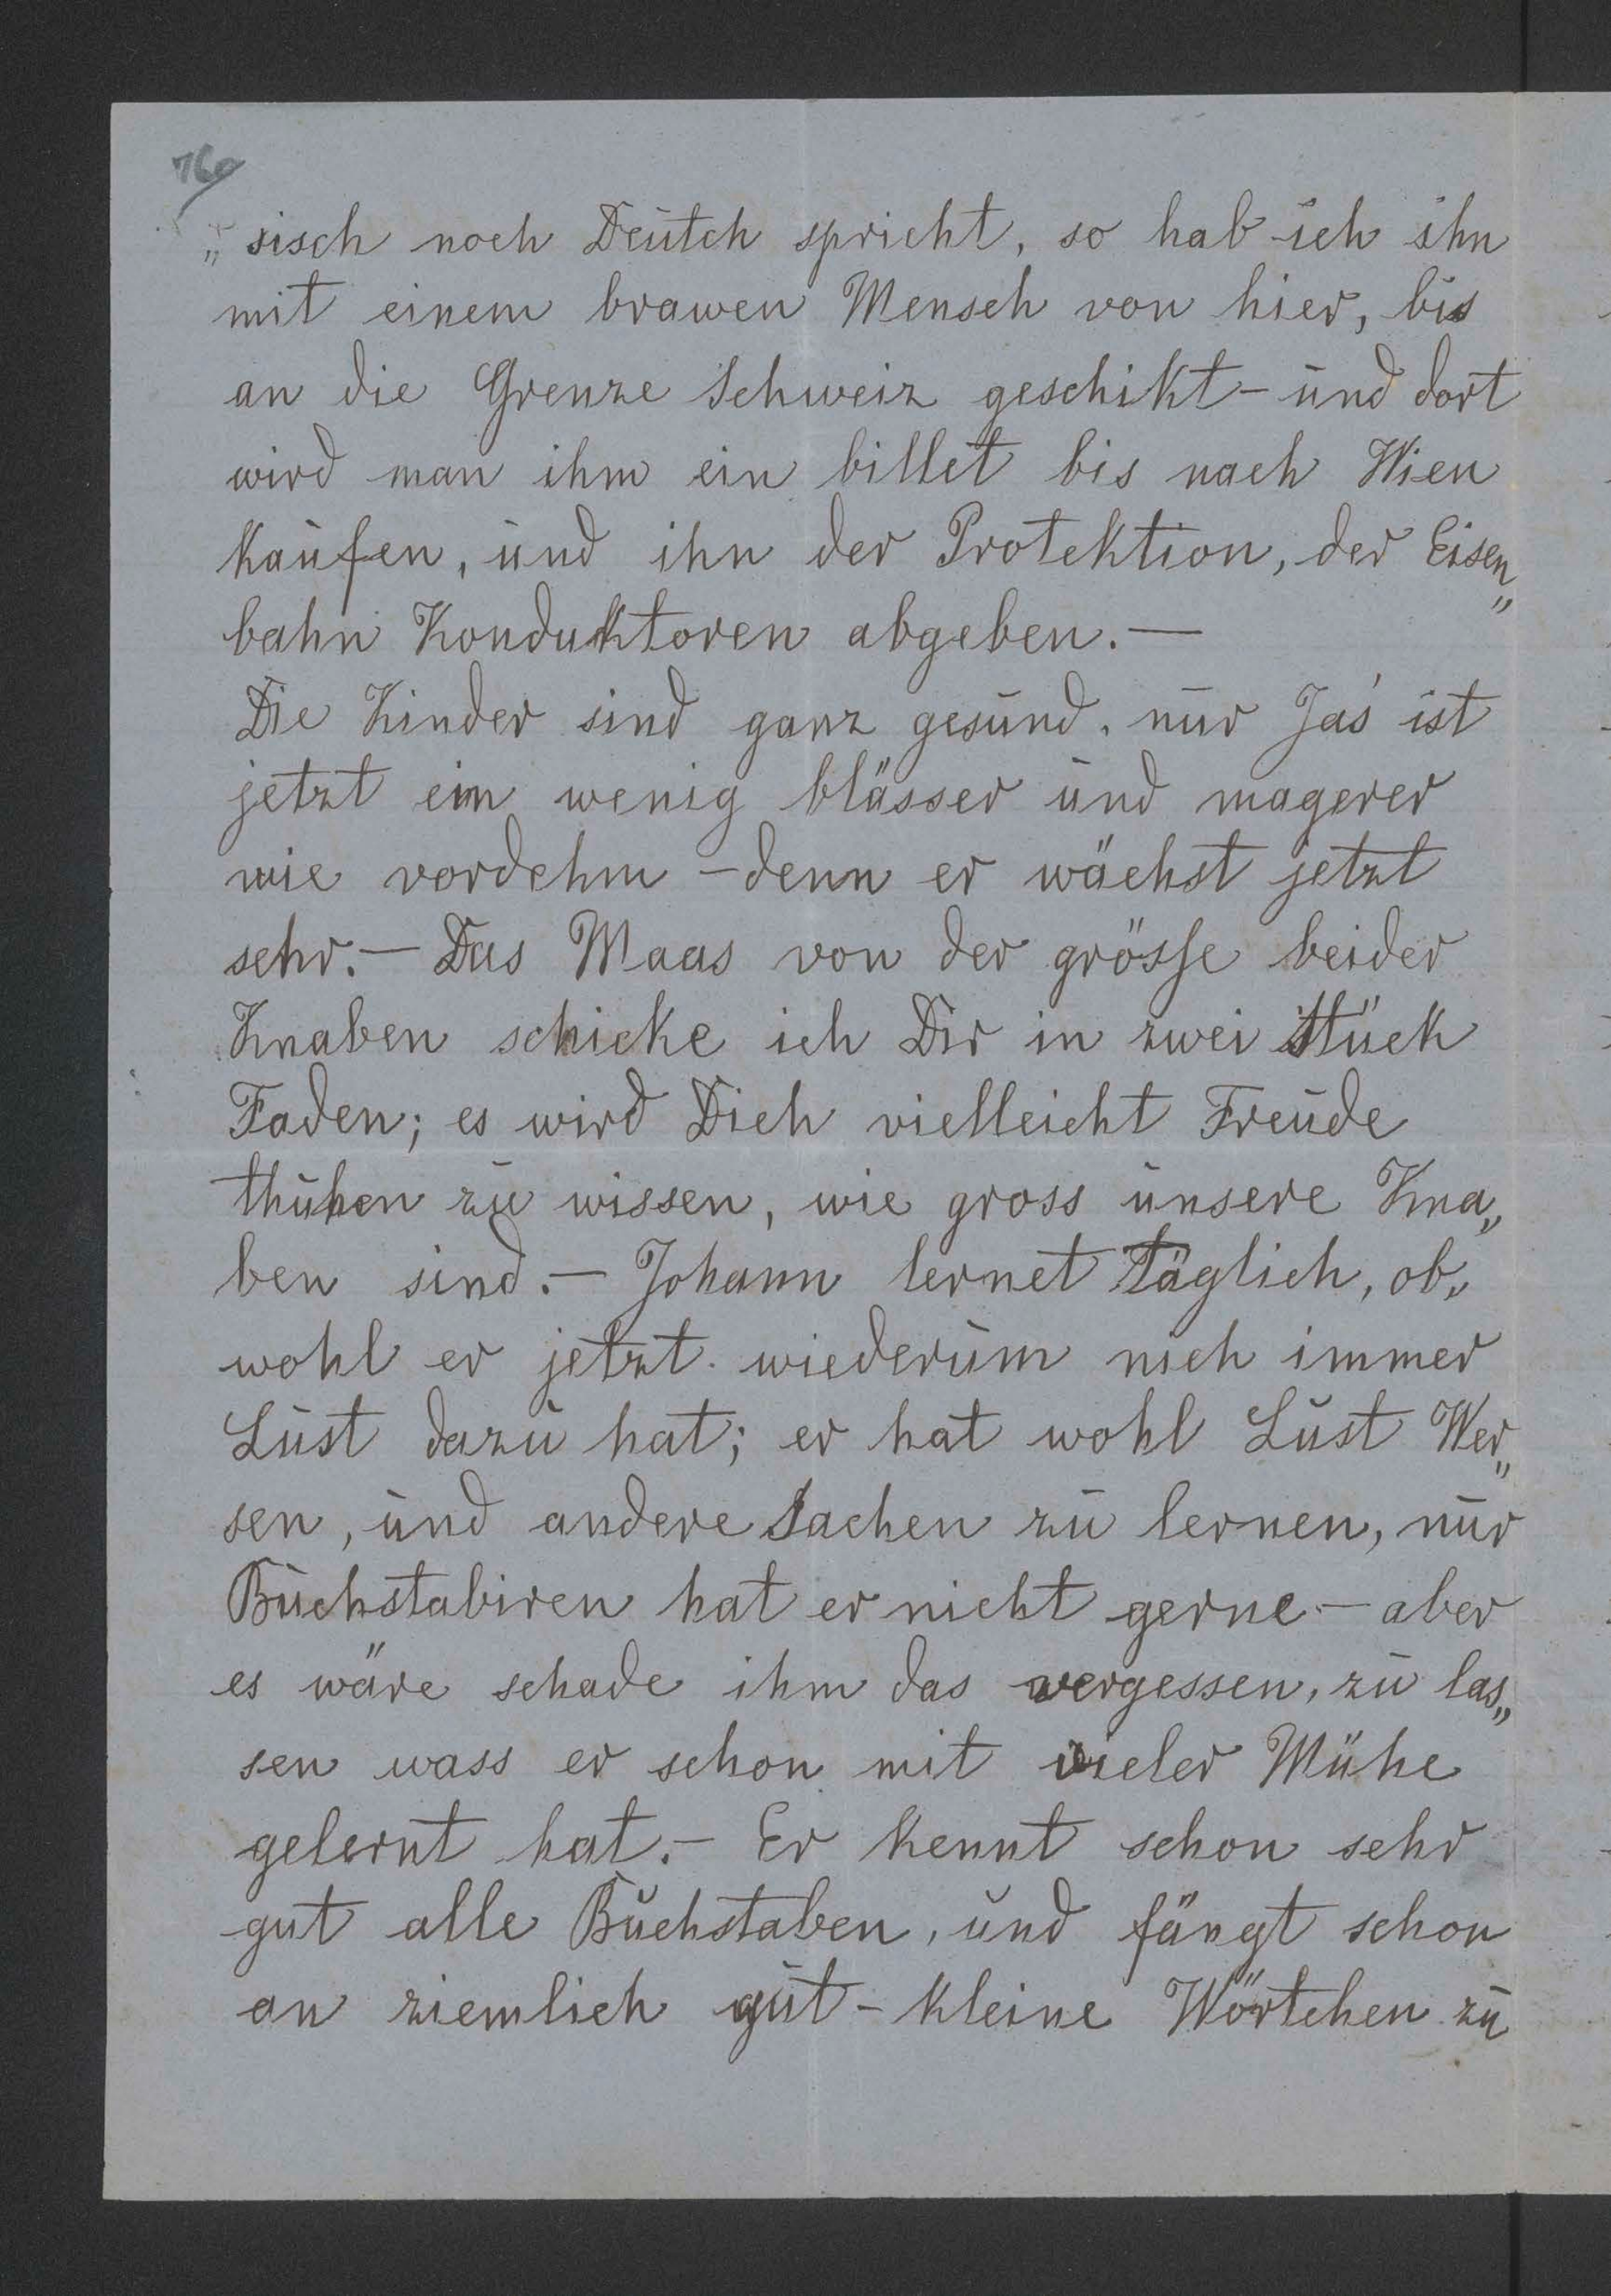 760
„sisch noch Deutch spricht, so hab ich ihn
mit einem brawen Mensch von hier, bis
an die Grenze Schweiz geschikt – und dort
wird man ihm ein billet bis nach Wien
kaufen, und ihn der Protektion, der Eisen„
bahn Konduktoren abgeben. —
Die Kinder sind ganz gesund, nur Jaś ist
jetzt ein wenig blässer und magerer
wie vordehm – denn er wächst jetzt
sehr. – Das Maas von der grösse beider
Knaben schicke ich Dir in zwei Stück
Faden; es wird Dich vielleicht Freude
thuhen zu wissen, wie gross unsere Kna„
ben sind. – Johann lernet täglich, ob„
wohl er jetzt wiederum nich immer
Lust dazu hat; er hat wohl Lust Wer„
sen, und andere Sachen zu lernen, nur
Buchstabiren hat er nicht gerne – aber
es wäre schade ihm das vergessen, zu las„
sen wass er schon mit vieler Mühe
gelernt hat. – Er kennt schon sehr
gut alle Buchstaben, und fängt schon
an ziemlich gut – kleine Wörtchen zu